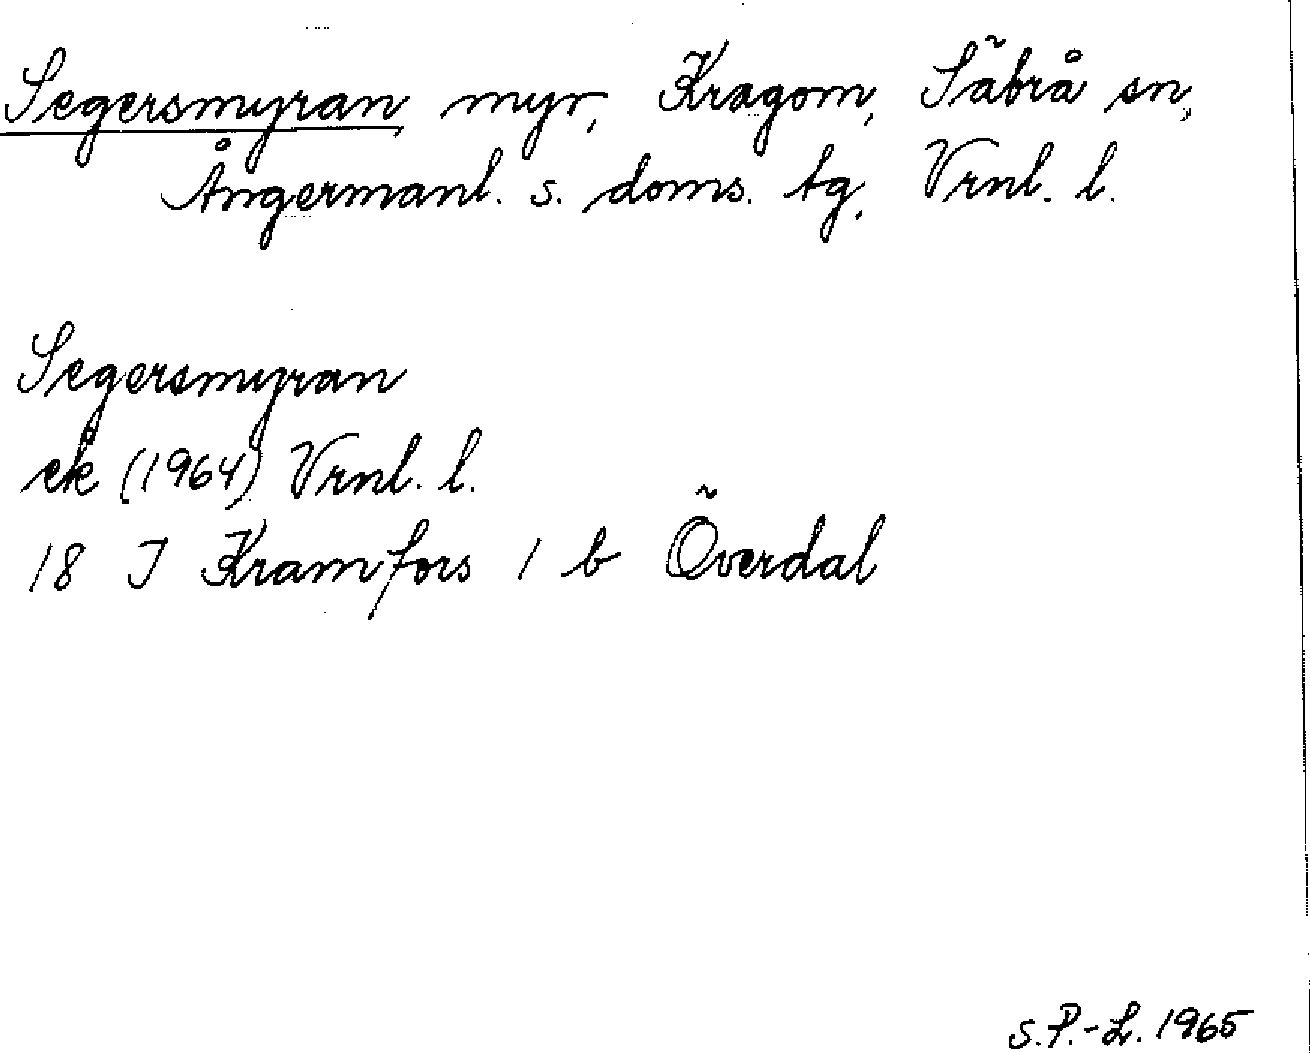 Segersmyran, myr, Kragom, Säbrå sn,
Ångermanl. s. doms. tg. Vrnl. l.
Segersmyran
ek (1964) Vrnl. l.
18 I Kramfors 1 b Överdal
S.P.-L. 1965